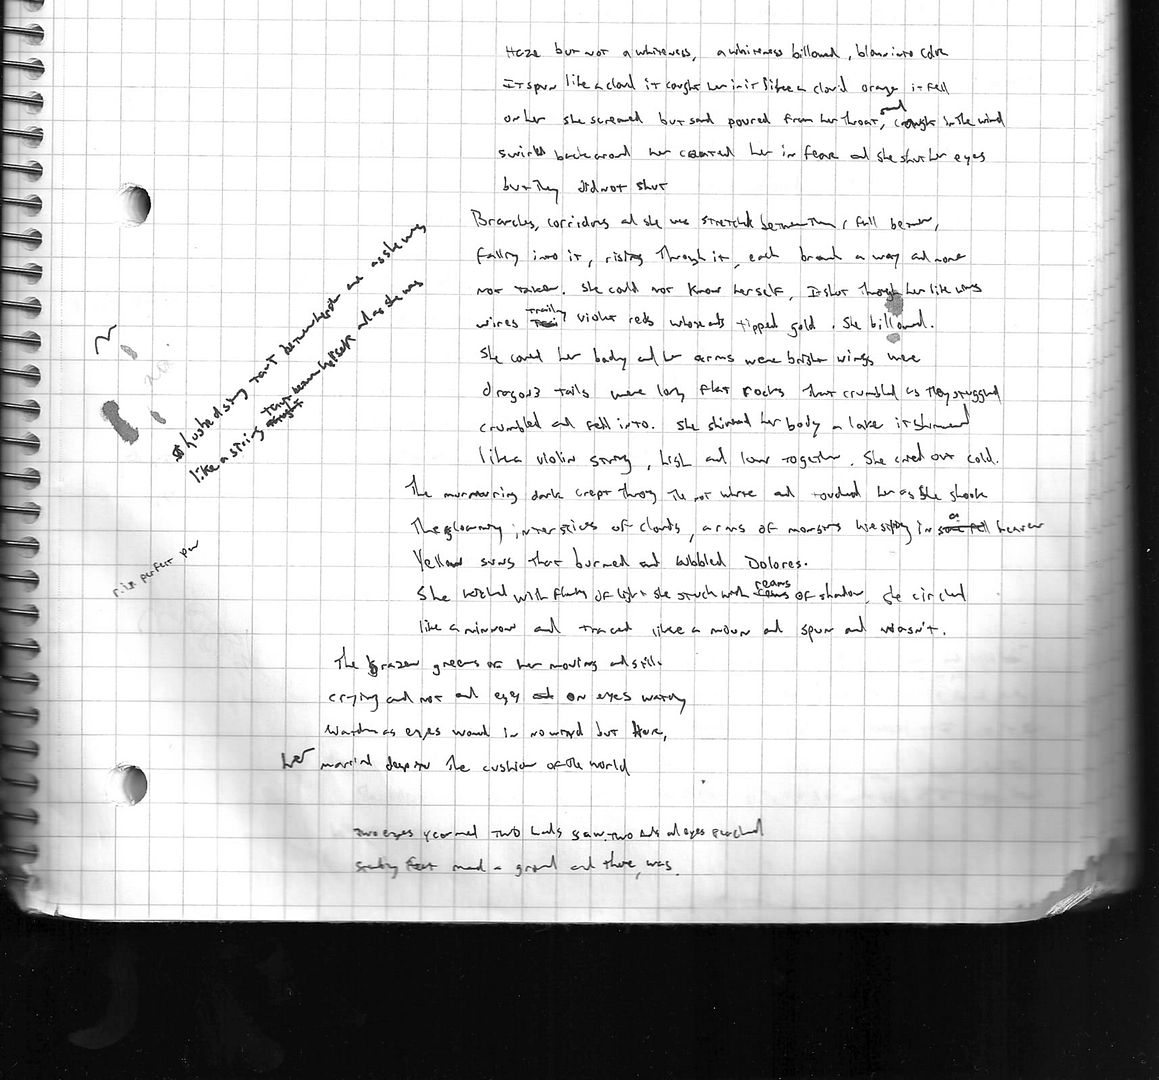 Haze but not a whiteness, a whiteness billowed, blown into color
It spun like a cloud it caught her in it like a cloud orange it fell
on her she screamed but sand poured from her throat, and caught in the wind
swirled back around her coated her in fear and she shut her eyes
but they did not shut
Branches, corridors and she was stretched between them, fell between,
falling into it, rising through it, each branch a way and none
not taken. She could not know herself, It shot through her like
wires trailing violet reds whose ends tipped gold. She billowed.
She could her body and her arms were brighter wings were
dragons tails were long flat rocks that crumbled as they struggled
crumbled and fell into. She shimmed her body a lake it shimmed
like a violin string, high and low together. She cried out cold.
The murmuring dark crept through the not white and touched her as she shook
The gloaming interstices of clouds, arms of monsters in a heaven
Yellow suns that burned and bubbled Dolores.
She with of light she struck with reams of shadow, she circled
like a minnow and traced like a moon and spun and wasn't.
The brazen greens of her moving and still
crying and not and eyes on eyes
as eyes in but
her deep in the cushion of the world
two eyes yearned two hands saw two and eyes
feet made a ground and there, was.
string taut between and as she was
like a string between herself and as she was
r. in perfect